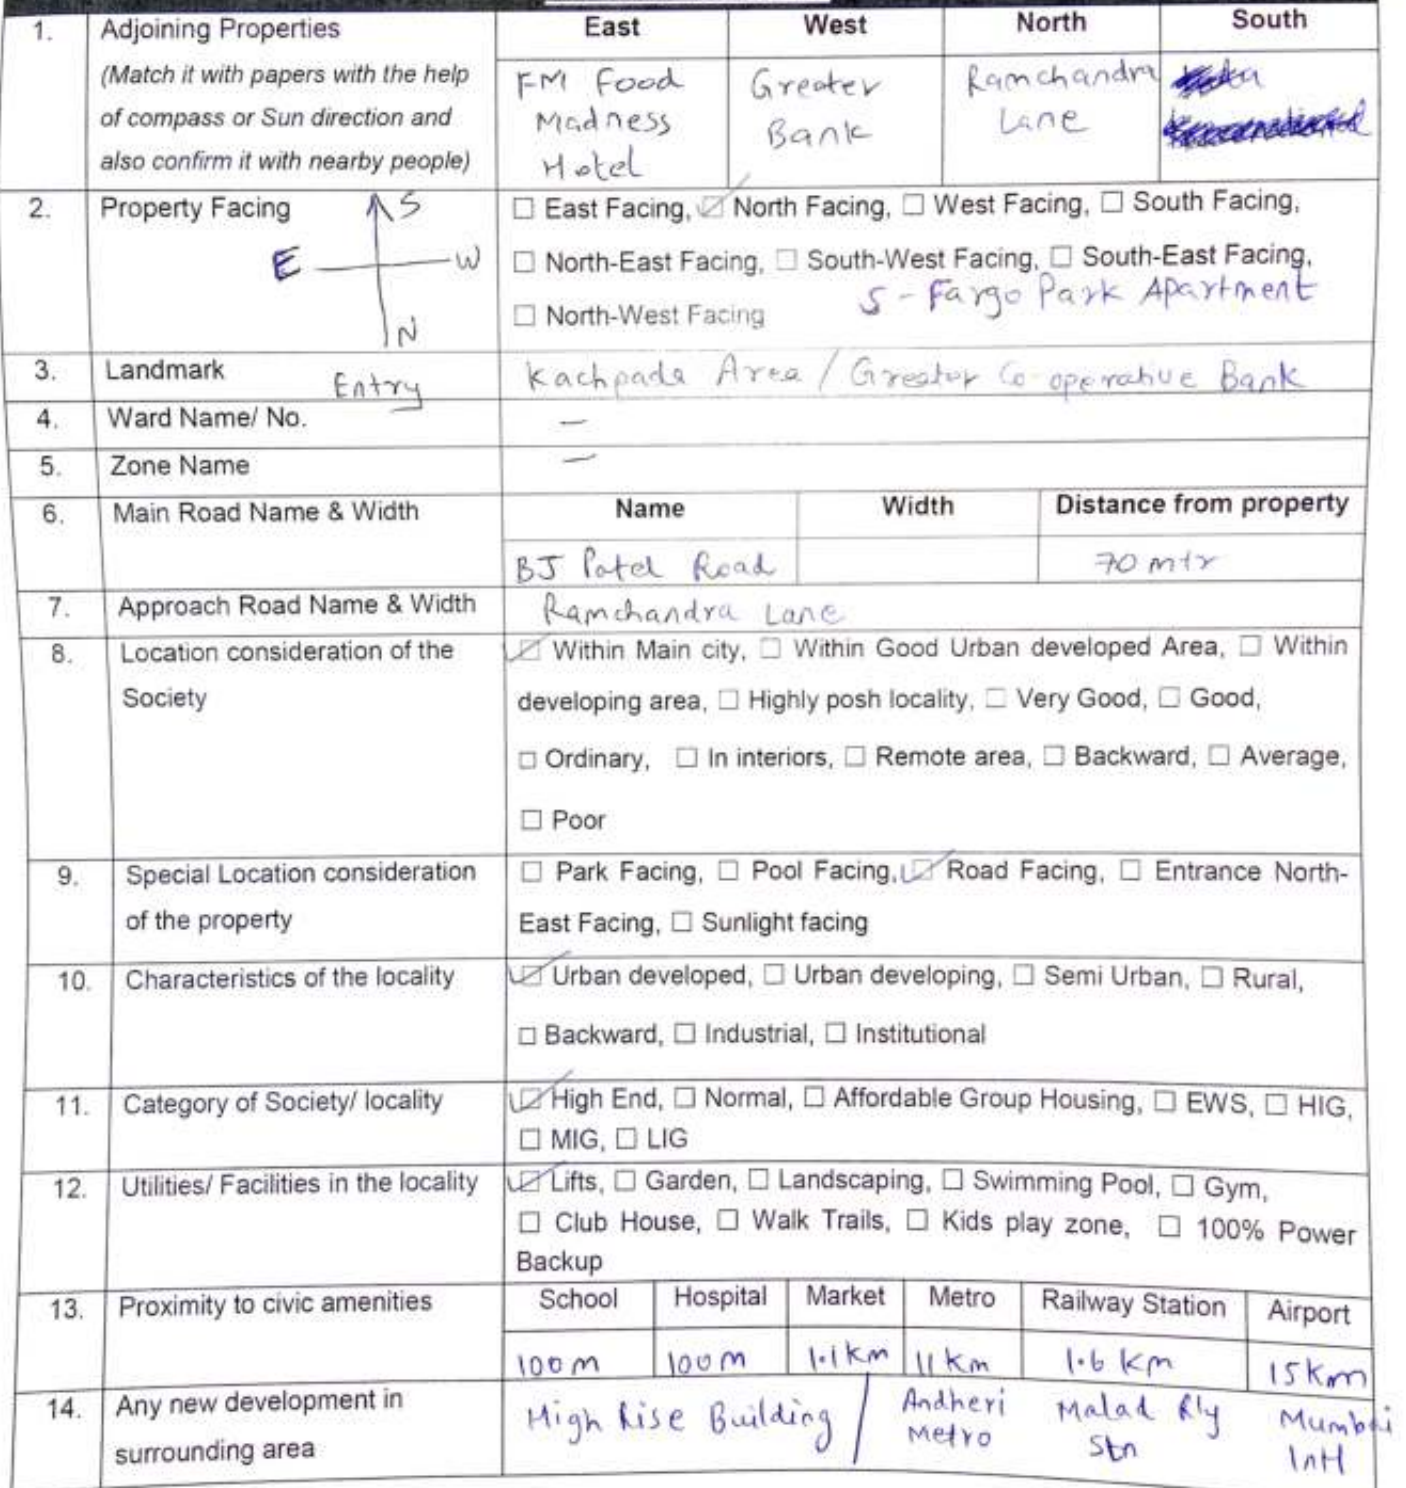 1. Adjoining Properties East West North South
(Match it with papers with the help
of compass or Sun direction and
also confirm it with nearby people)
FM Food
Madness
Hotel
Greater
Bank
Ramchandra
Lane
2. Property Facing
S
E W
N
Entry
☐ East Facing, ☑ North Facing, ☐ West Facing, ☐ South Facing,
☐ North-East Facing, ☐ South-West Facing, ☐ South-East Facing,
S - Fargo Park Apartment
☐ North-West Facing
3. Landmark Kachpada Area / Greater Co-operative Bank
4. Ward Name/ No. –
5. Zone Name –
6. Main Road Name & Width Name Width Distance from property
BJ Patel Road 70 mtr
7. Approach Road Name & Width Ramchandra Lane
8. Location consideration of the
Society
☑ Within Main city, ☐ Within Good Urban developed Area, ☐ Within
developing area, ☐ Highly posh locality, ☐ Very Good, ☐ Good,
☐ Ordinary, ☐ In interiors, ☐ Remote area, ☐ Backward, ☐ Average,
☐ Poor
9. Special Location consideration
of the property
☐ Park Facing, ☐ Pool Facing, ☑ Road Facing, ☐ Entrance North-
East Facing, ☐ Sunlight facing
10. Characteristics of the locality
☑ Urban developed, ☐ Urban developing, ☐ Semi Urban, ☐ Rural,
☐ Backward, ☐ Industrial, ☐ Institutional
11. Category of Society/ locality
☑ High End, ☐ Normal, ☐ Affordable Group Housing, ☐ EWS, ☐ HIG,
☐ MIG, ☐ LIG
12. Utilities/ Facilities in the locality
☑ Lifts, ☐ Garden, ☐ Landscaping, ☐ Swimming Pool, ☐ Gym,
☐ Club House, ☐ Walk Trails, ☐ Kids play zone, ☐ 100% Power
Backup
13. Proximity to civic amenities School Hospital Market Metro Railway Station Airport
100 m 100 m 1.1 km 11 km 1.6 km 15 km
14. Any new development in
surrounding area
High Rise Building /
Andheri
Metro
Malad Rly
Stn
Mumbai
Intl